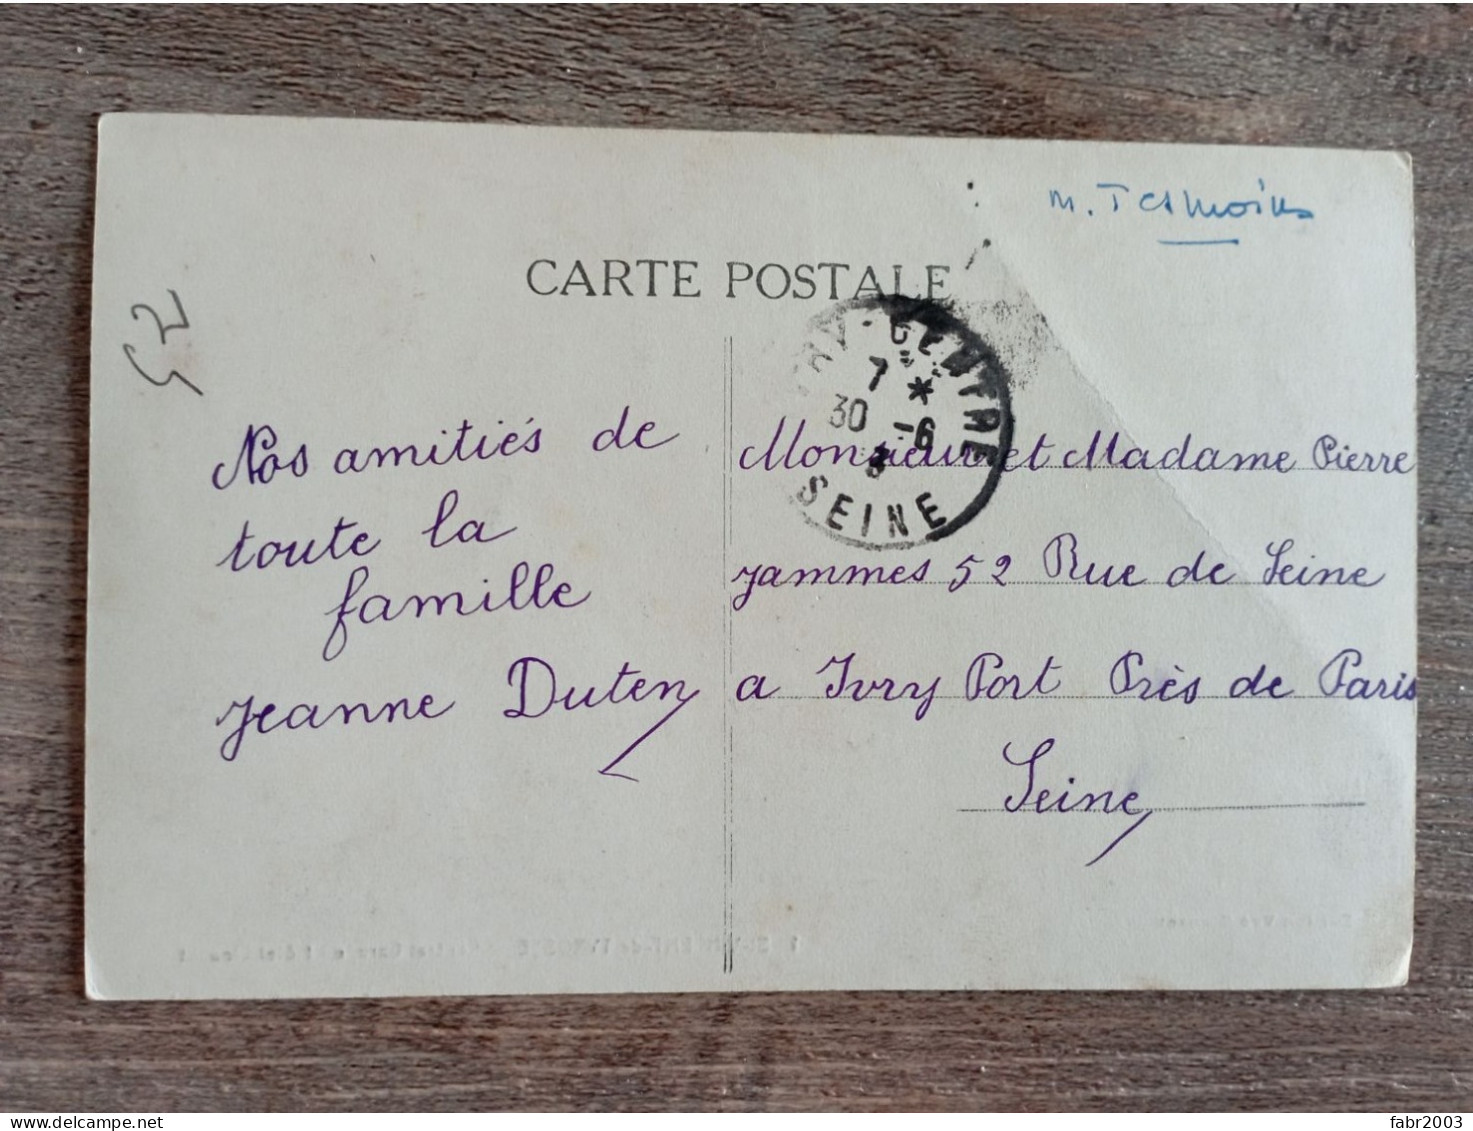 M. Tesmoins
CARTE POSTALE
52
CENTRE
7 *
30 -6
SEINE
Nos amitiés de
toute la
famille
Jeanne Duten
Monsieur et Madame Pierre
Jammes 52 Rue de Seine
a Ivry Port Près de Paris
Seine
delcampe.net
fabr2003